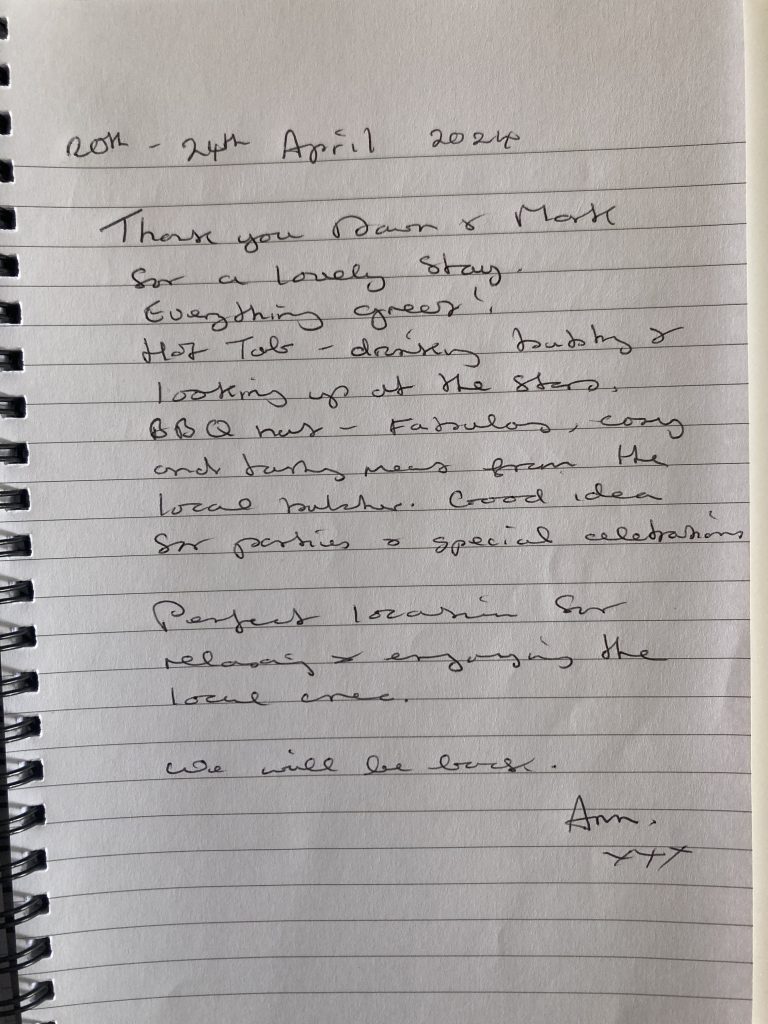 20th - 24th April 2024
Thank you Dawn & Mark
for a lovely stay.
Everything great!
Hot Tub - drinking bubbly &
looking up at the stars.
BBQ hut - Fabulous, cosy
and tasty meat from the
local butcher. Good idea
for parties & special celebrations
Perfect location for
relaxing & enjoying the
local area.
We will be back.
Ann.
xxx